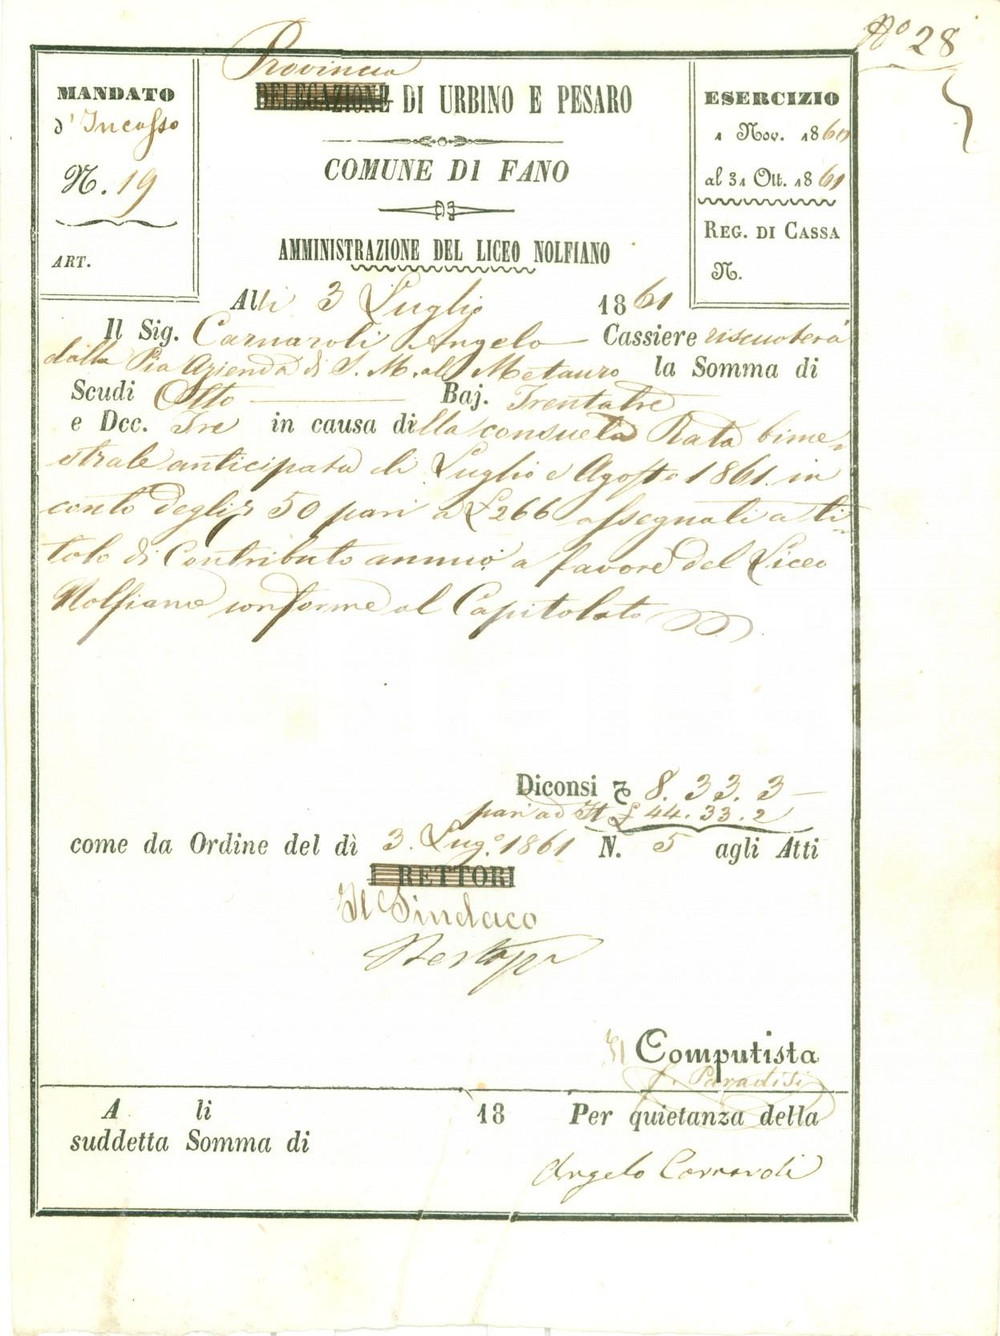 No 28
MANDATO
d'Incasso
N. 19
ART.
Provincia
DELEGAZIONE DI URBINO E PESARO
COMUNE DI FANO
AMMINISTRAZIONE DEL LICEO NOLFIANO
ESERCIZIO
1 Nov. 1860
al 31 Ott. 1861
REG. DI CASSA
N.
Alli 3 Luglio 1861
Il Sig. Carnaroli Angelo Cassiere riscuoterà
dalla Pia Azienda di S. M. al Metauro la Somma di
Scudi Otto Baj. Trentatre
e Dec. Tre in causa della consueta Rata bime-
strale anticipata di Luglio e Agosto 1861 in
conto degli 50 pari a £ 266 assegnati a ti-
tolo di Contributo annuo a favore del Liceo
Nolfiano conforme al Capitolato
Diconsi 8. 33. 3
pari ad It £ 44. 33. 2
come da Ordine del dì 3. Lug.o 1861 N. 5 agli Atti
I RETTORI
Il Sindaco
Il Computista
F. Paradisi
A li 18 Per quietanza della
suddetta Somma di
Angelo Carnaroli